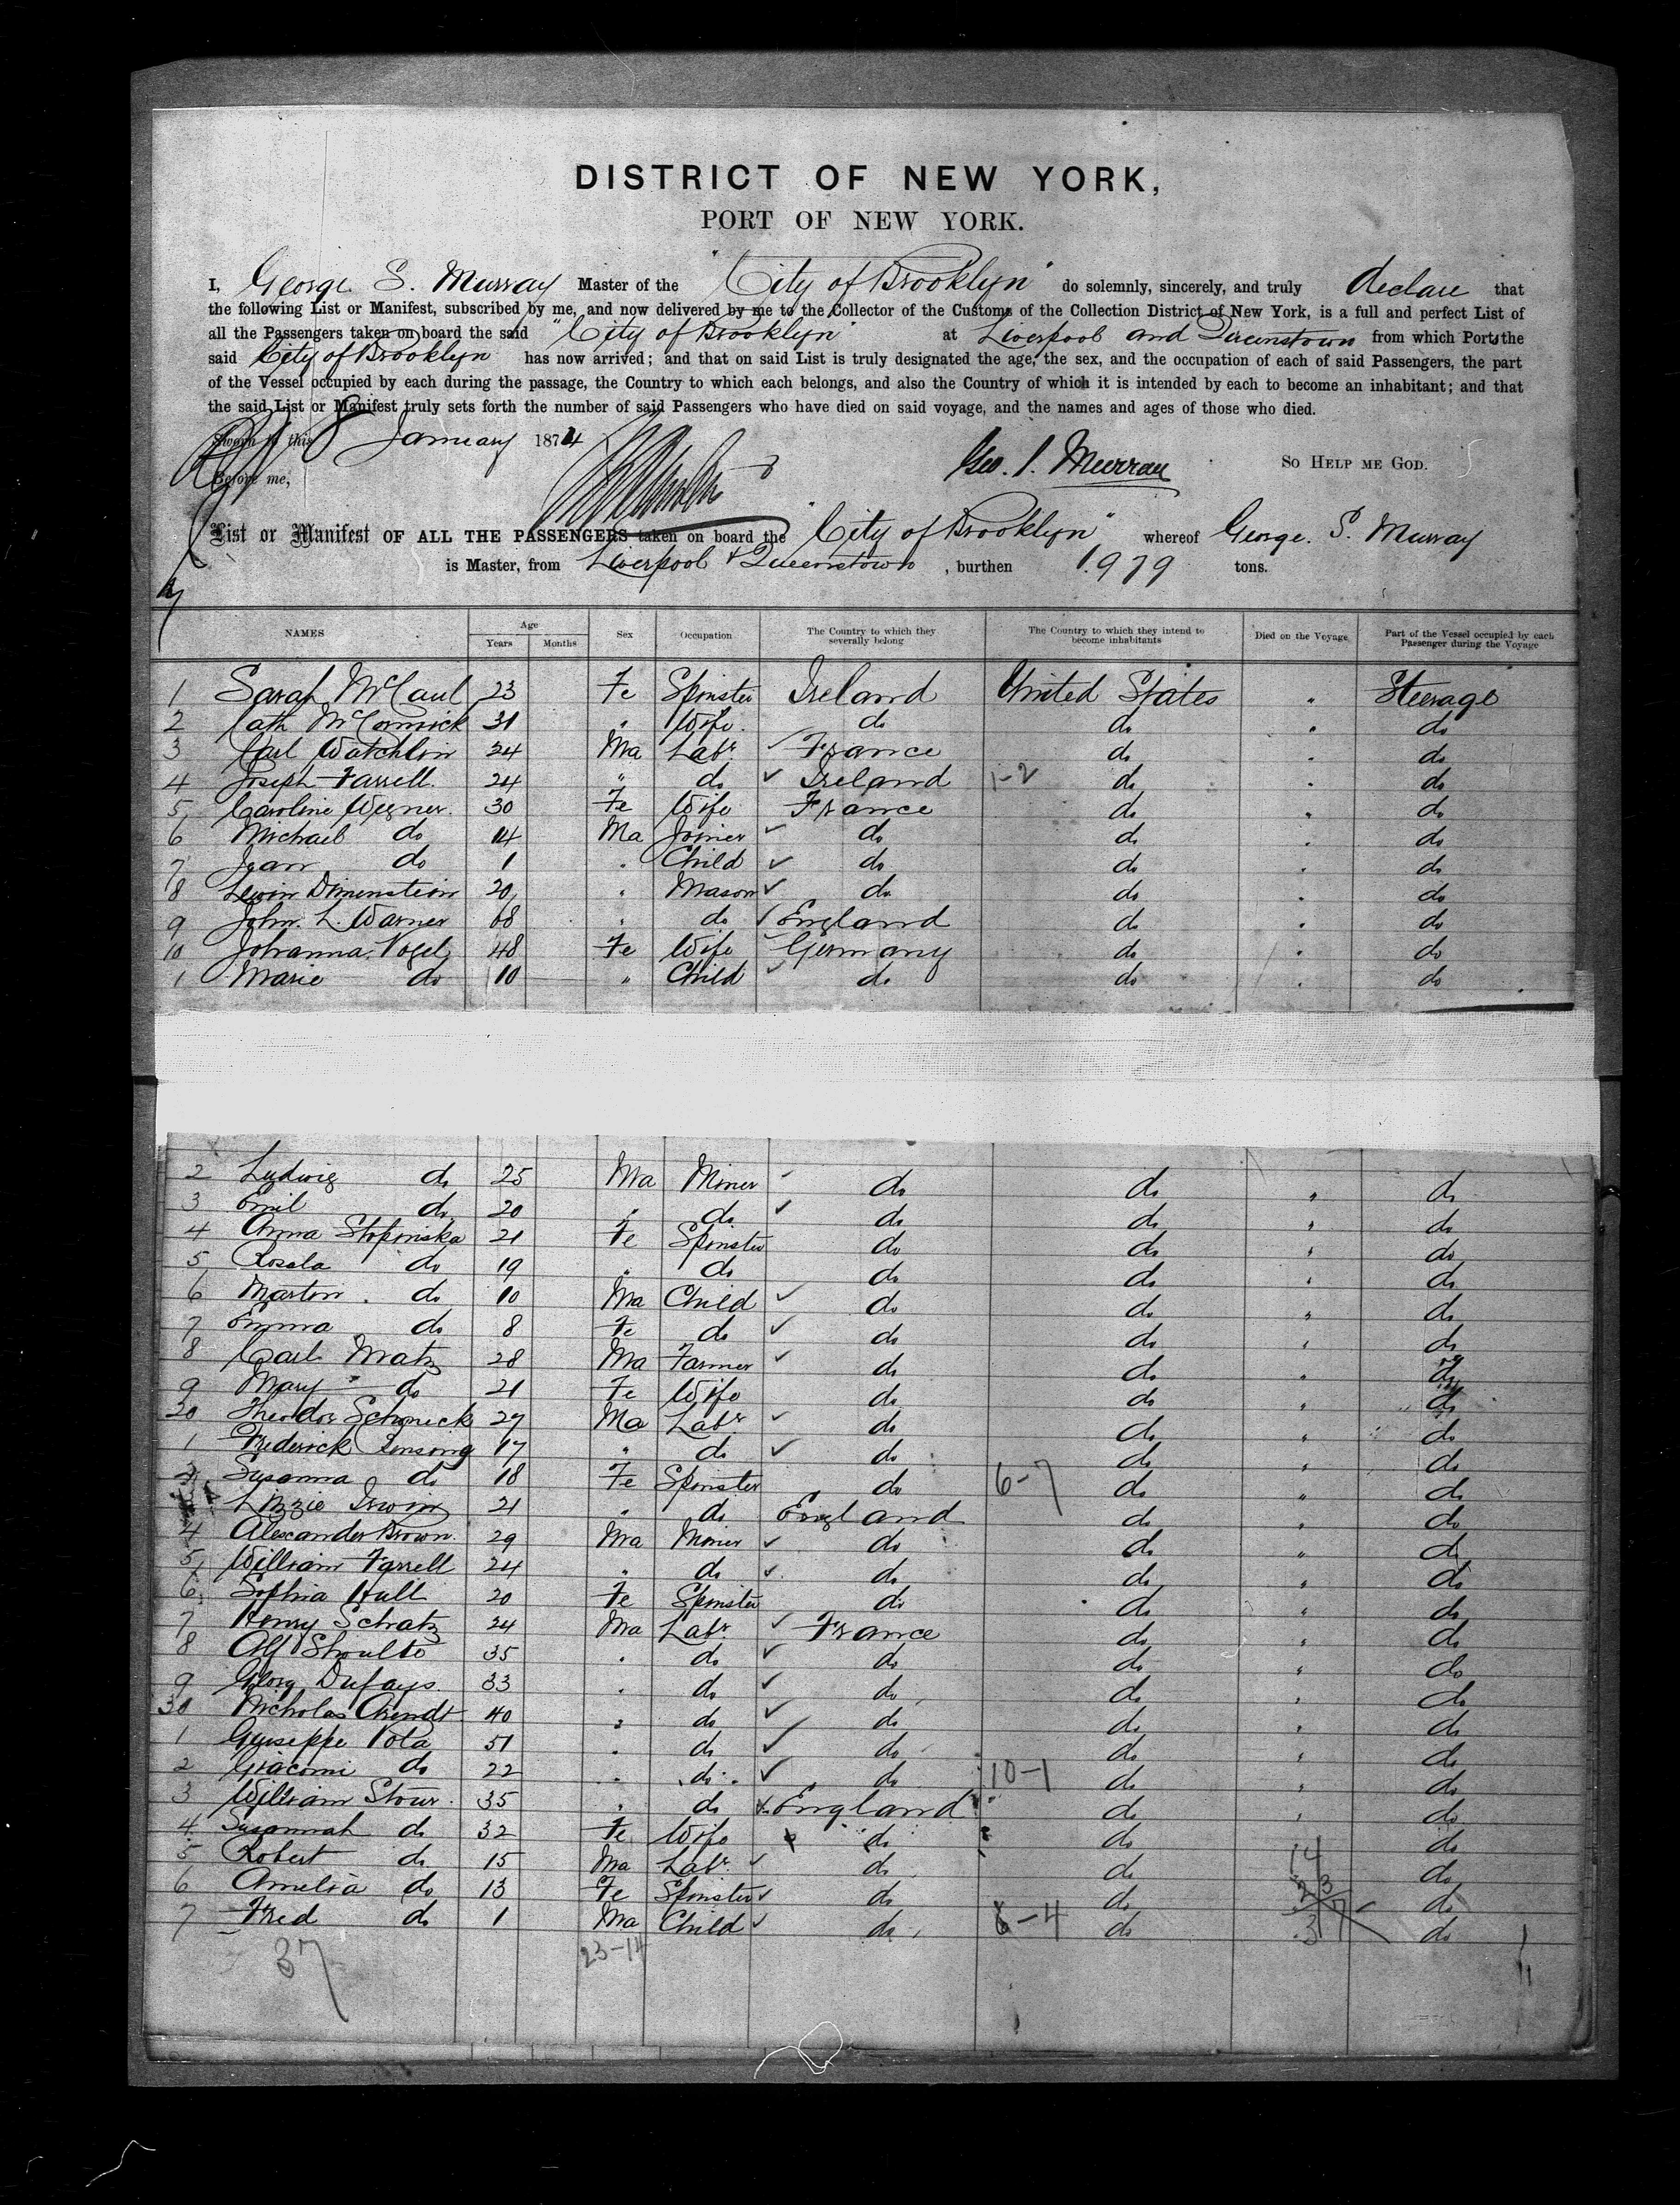 DISTRICT OF NEW YORK,
PORT OF NEW YORK.
I, George S. Murray Master of the "City of Brooklyn" do solemnly, sincerely, and truly declare that
the following List or Manifest, subscribed by me, and now delivered by me to the Collector of the Customs of the Collection District of New York, is a full and perfect List of
all the Passengers taken on board the said "City of Brooklyn" at Liverpool and Queenstown from which Ports the
said City of Brooklyn has now arrived; and that on said List is truly designated the age, the sex, and the occupation of each of said Passengers, the part
of the Vessel occupied by each during the passage, the Country to which each belongs, and also the Country of which it is intended by each to become an inhabitant; and that
the said List or Manifest truly sets forth the number of said Passengers who have died on said voyage, and the names and ages of those who died.
Sworn to this 8 January 1874
Geo. S. Murray SO HELP ME GOD.
Before me,
List or Manifest OF ALL THE PASSENGERS taken on board the "City of Brooklyn" whereof George. S. Murray
is Master, from Liverpool & Queenstown, burthen 1979 tons.
NAMES Age Years Months Sex Occupation The Country to which they severally belong The Country to which they intend to become inhabitants Died on the Voyage Part of the Vessel occupied by each Passenger during the Voyage
1 Sarah McCaul 23 Fe Spinster Ireland United States " Steerage
2 Cath McCormick 31 " Wife do do " do
3 Carl Watchlin 24 Ma Labr ✓ France do " do
4 Joseph Farrell 24 " do ✓ Ireland 1-2 do " do
5 Caroline Wegner 30 Fe Wife France do " do
6 Michael do 14 Ma Joiner ✓ do do " do
7 Jean do 1 " Child ✓ do do " do
8 Dimenstein 20 " Mason ✓ do do " do
9 John. L. Warner 68 " do ✓ England do " do
10 Johanna Vogel 48 Fe Wife Germany do " do
1 Marie do 10 " Child ✓ do do " do
2 Ludwig do 25 Ma Miner ✓ do do " do
3 Emil do 20 " do ✓ do do " do
4 Anna Stopinska 21 Fe Spinster do do " do
5 Rosala do 19 " do do do " do
6 Martin do 10 Ma Child ✓ do do " do
7 Emma do 8 Fe do ✓ do do " do
8 Carl Matz 28 Ma Farmer ✓ do do " do
9 Mary do 21 Fe Wife do do " do
20 Theodor Schmeck 27 Ma Labr ✓ do do " do
1 Frederick 17 " do ✓ do do " do
2 Susanna do 18 Fe Spinster do 6-7 do " do
Lizzie Irwin 21 " do England do " do
4 Alexander Brown 29 Ma Miner ✓ do do " do
5 William Farrell 24 " do ✓ do do " do
6 Sophia Hull 20 Fe Spinster do do " do
7 Henry Schatz 24 Ma Labr ✓ France do " do
8 Alf Shoulte 35 " do ✓ do do " do
9 Georg Dufays 33 " do ✓ do do " do
30 Nicholas Arendt 40 " do ✓ do do " do
1 Guiseppe Vota 51 " do ✓ do do " do
2 Giacomi do 22 " do ✓ do 10-1 do " do
3 William Stour 35 " do England do " do
4 Susannah do 32 Fe Wife do do do
5 Robert do 15 Ma Labr ✓ do do 14 do
6 Amelia do 13 Fe Spinster ✓ do do 23 do
7 Fred do 1 Ma Child ✓ do 6-4 do 37 do
37 23-14